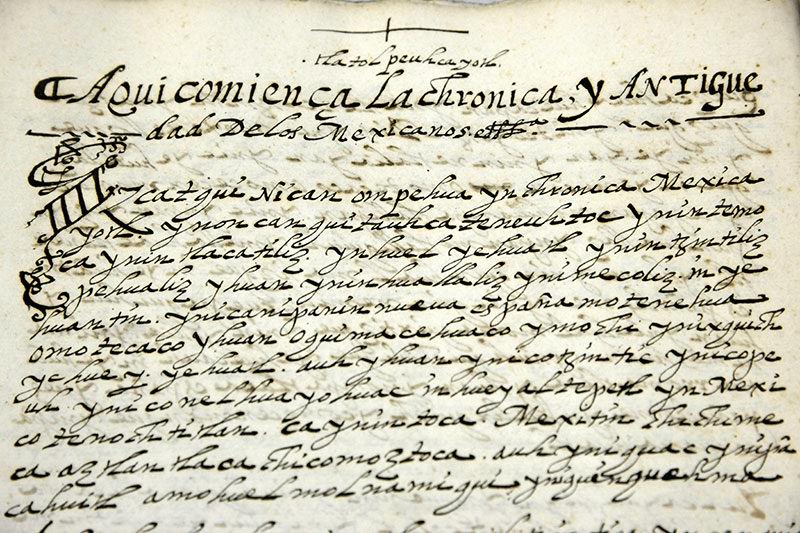 tlatolpeuhcayotl.
Aqui comiença La chronica, y ANTigue
dad Delos Mexicanos.
Izcatqui Nican ompehua ynchronica Mexica
yotl. yn oncan quitauhcateneuhtoc ynintemo
ca ynin tlacatiliz. ynhuel yehuatl ynintzintiliz
pehualiz yhuan yninhuallaliz ynimecoliz. in ye
huantin. ynicanipanin nueua españa motenehua
omotecaco yhuan oquimacehuaco ymochi ynixquich
ychuey yehuatl. auh yhuan ynicotzintic ynicope
uh. ynic onelhuayohuac inhueyaltepetl yn Mexi
co tenochtitlan. ca ynintoca. Mexitin chichime
ca aztlantlaca chicomoztoca. auh yniquac
cahuitl amohuel molnamiqui